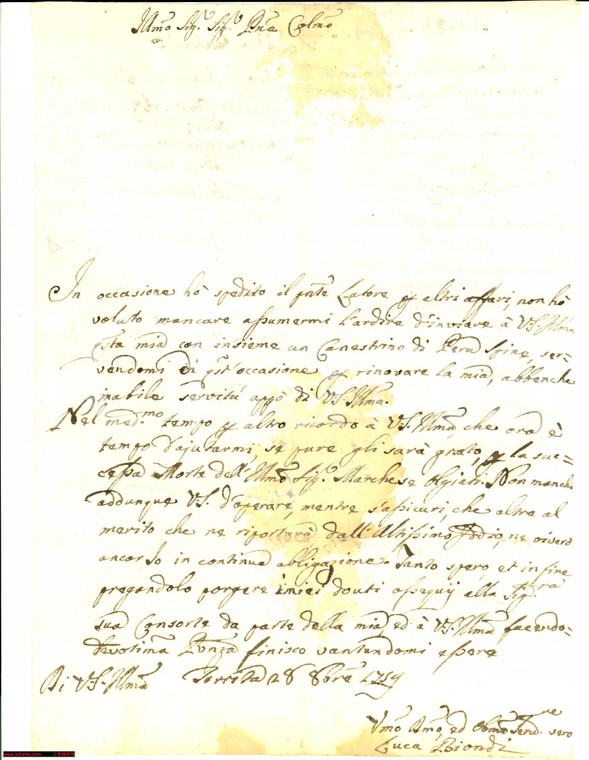 Illmo Sigr. Sigr. Prne Colmo
In occasione hò spedito il pnte Latore p altri affari, non hò
voluto mancare assumermi l'ardire d'inviare à VS. Illma
qsta mia con insieme un Canestrino di Pera spine, ser=
vendomi di qst'occasione p rinovare la mia, abbenche
inabile servitù appo di VS. Illma.
Nel med.mo tempo p altro ricordo à VS. Illma, che ora è
tempo d'ajutarmi, se pure gli sarà grato, p la suc=
cessa Morte dell'Illmo Sigr. Marchese Olgiati. Non manchi
addunque VS. d'operare, mentre s'assicuri, che altre al
merito che ne riporterà dall'Altissimo Iddio, ne viverò
ancor Io in continua obligazione. Tanto spero et in fine
pregandolo porgere i miei dovuti ossequij alla Sig.ra
sua Consorte da parte della mia, ed à VS. Illma facendo=
finisco vantandomi essere
Di VS. Illma 28 8bre
Umo ed Obmo vero
Luca Biondi